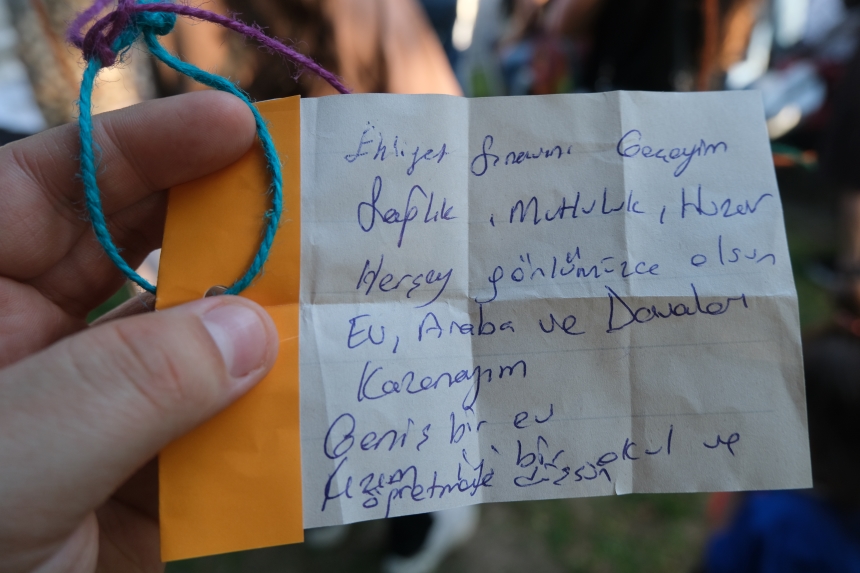 Ehliyet Sınavını Geçeyim
Sağlık, Mutluluk, Huzur
Herşey gönlümüzce olsun
Ev, Araba ve Davaları
Kazanayım
Geniş bir ev
Kızım iyi bir okul ve
öğretmene düşsün